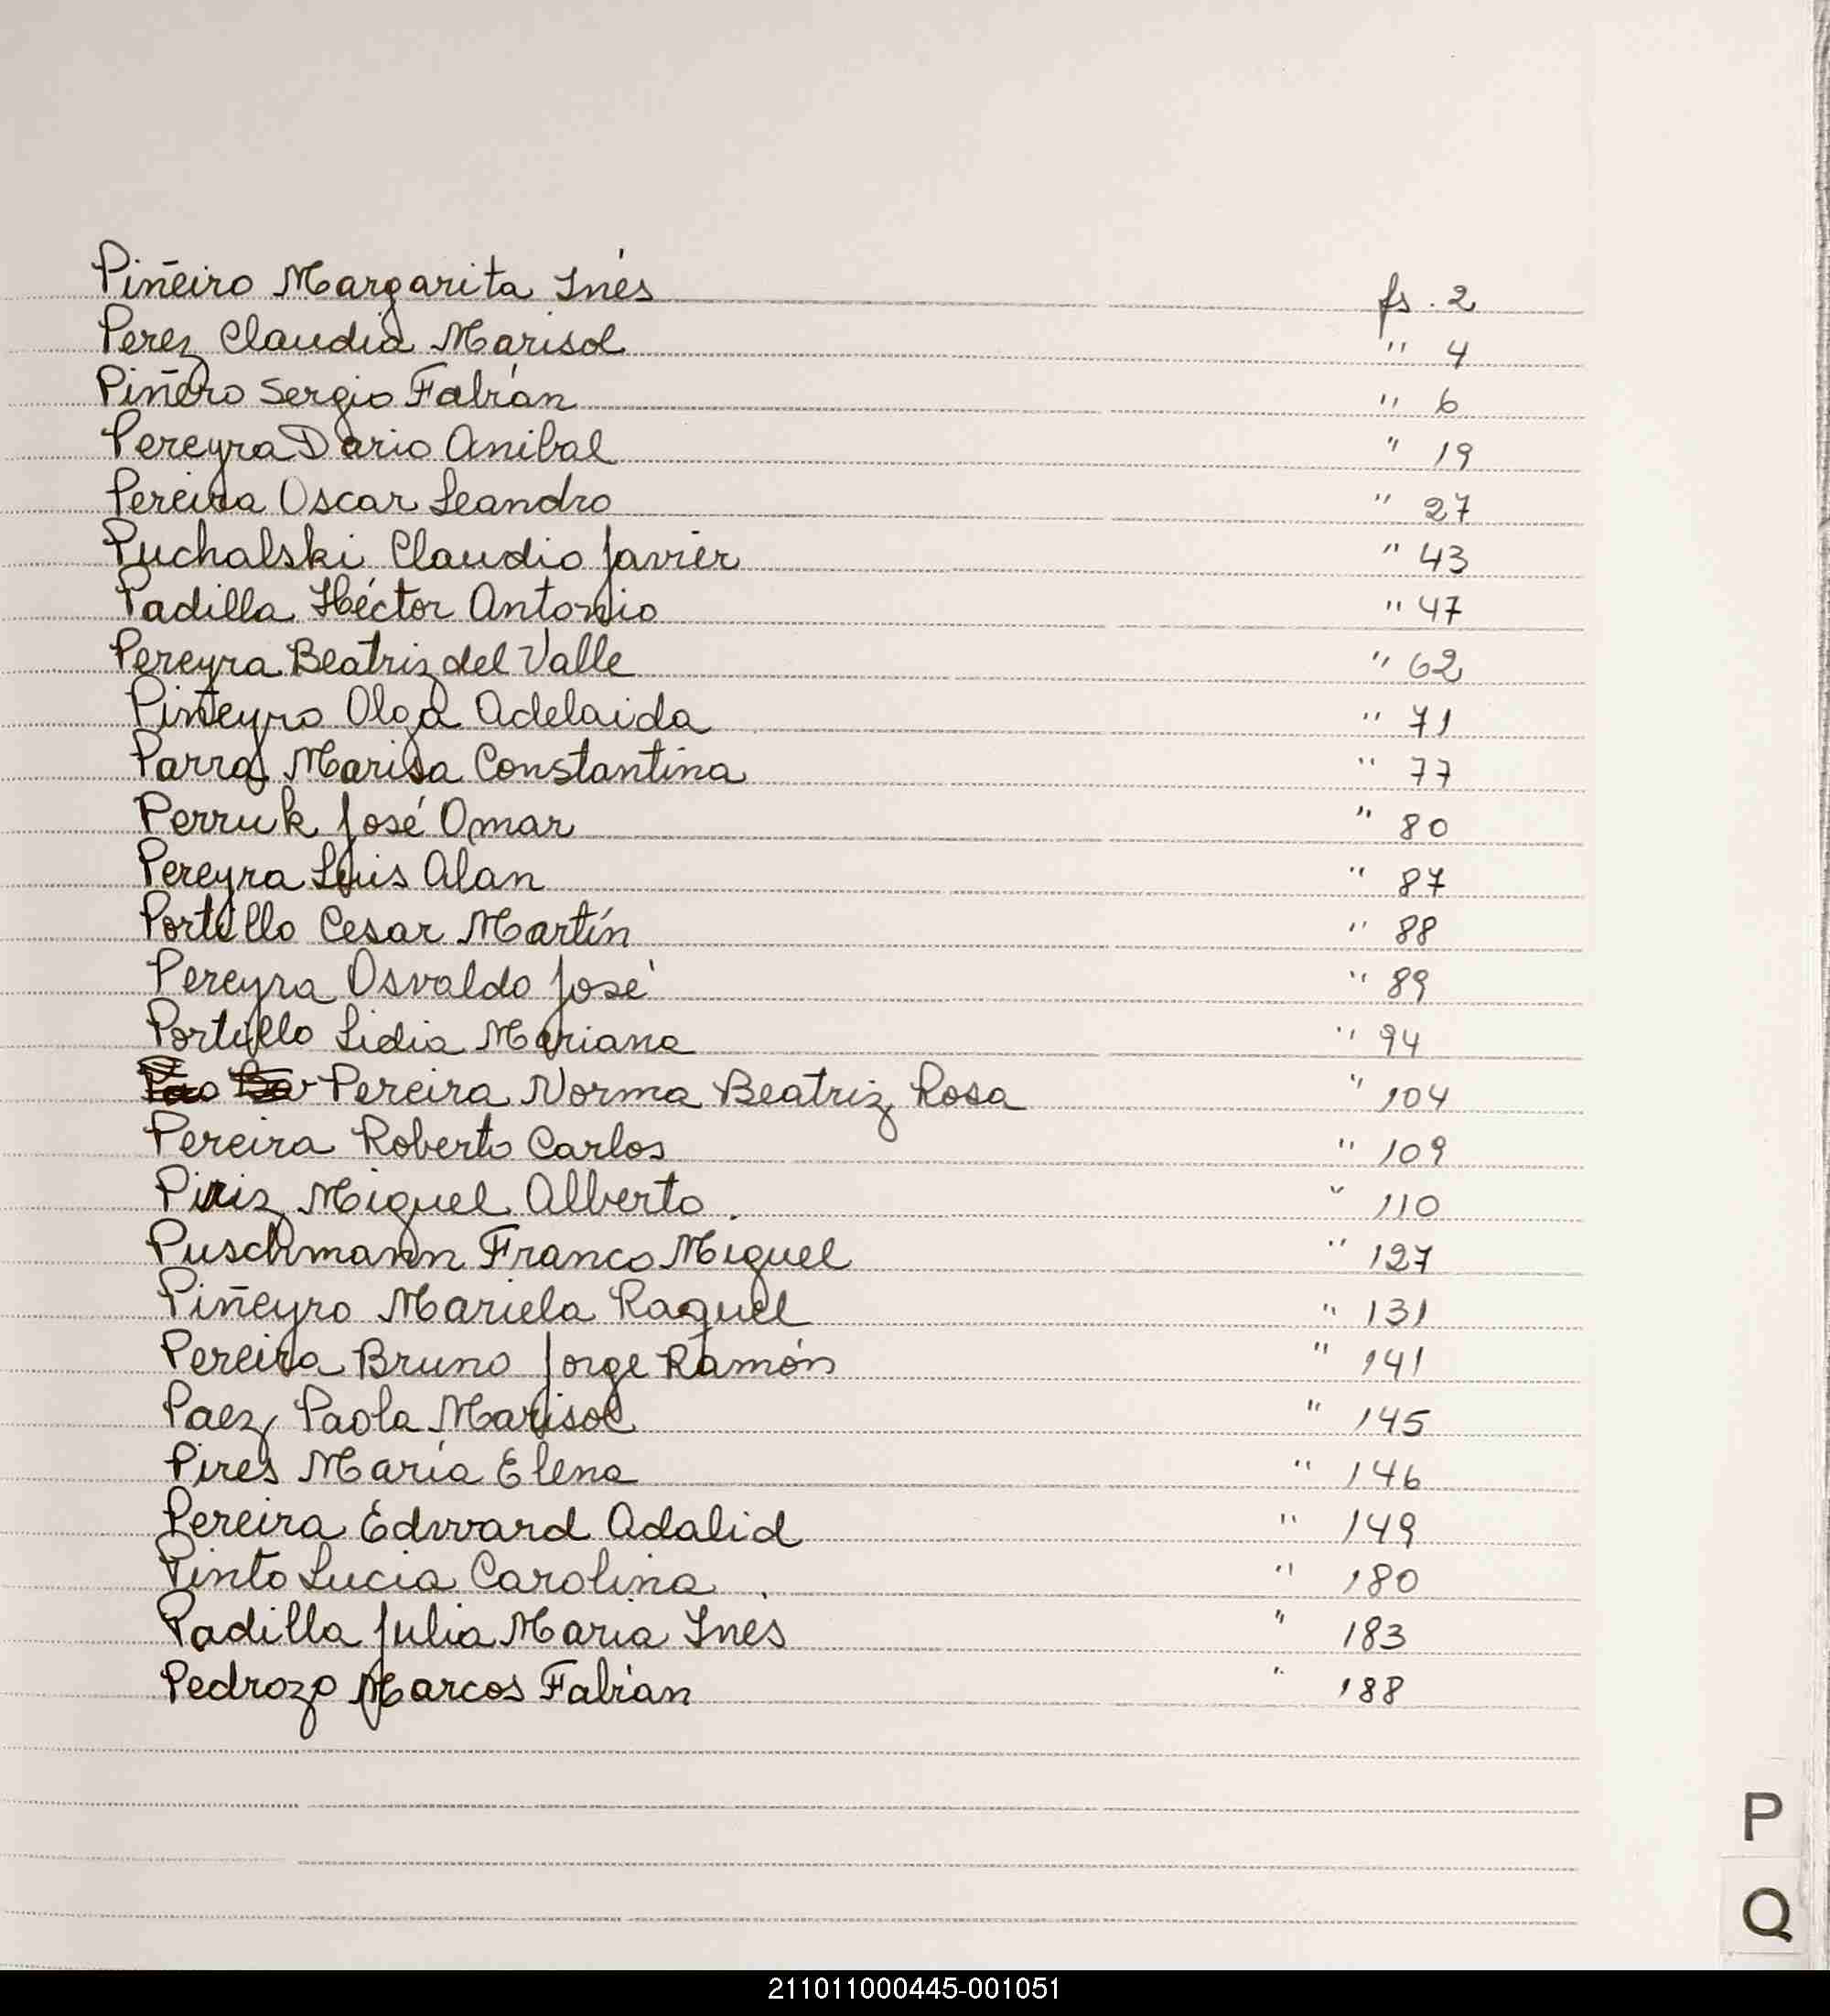 Piñeiro Margarita Inés fs. 2
Perez Claudia Marisol " 4
Piñero Sergio Fabián " 6
Pereyra Dario Anibal " 19
Pereira Oscar Leandro " 27
Puchalski Claudio Javier " 43
Padilla Héctor Antonio " 47
Pereyra Beatriz del Valle " 62
Piñeyro Olga Adelaida " 71
Parra Marisa Constantina " 77
Perruk José Omar " 80
Pereyra Luis Alan " 87
Portillo Cesar Martín " 88
Pereyra Osvaldo José " 89
Portillo Lidia Mariana " 94
Pereira Norma Beatriz Rosa " 104
Pereira Roberto Carlos " 109
Piriz Miguel Alberto " 110
Puschmann Franco Miguel " 127
Piñeyro Mariela Raquel " 131
Pereira Bruno Jorge Ramón " 141
Paez Paola Marisol " 145
Pires María Elena " 146
Pereira Edward Adalid " 149
Pinto Lucia Carolina " 180
Padilla Julia Maria Inés " 183
Pedrozo Marcos Fabian " 188
P
Q
211011000445-001051